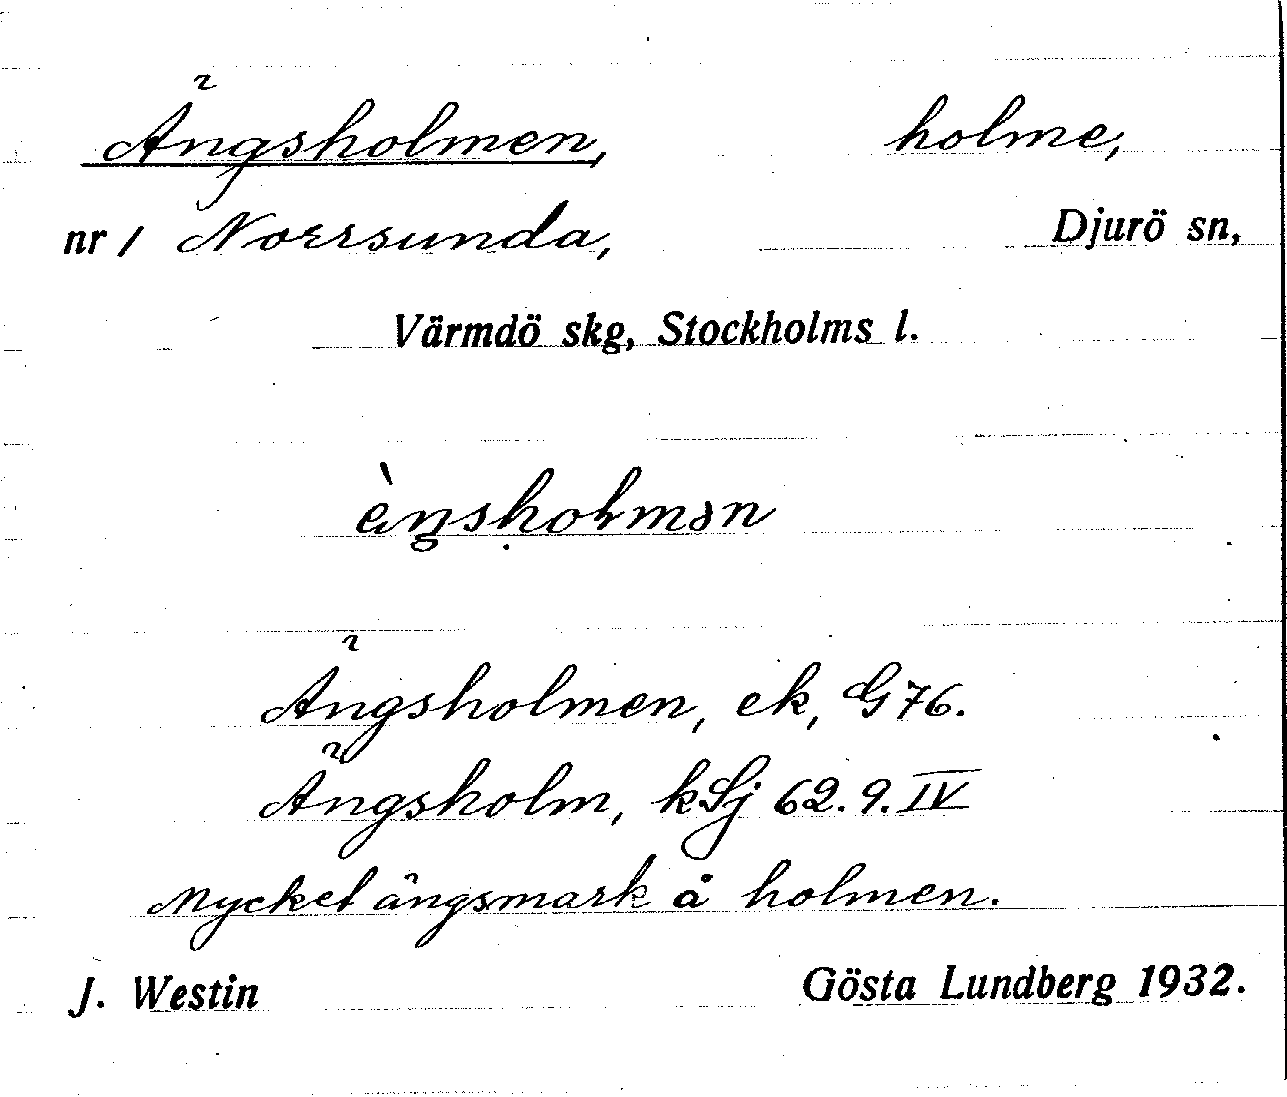 Ängsholmen, holme,
nr 1 Norrsunda, Djurö sn,
Värmdö skg, Stockholms l.
èŋsholmən
Ängsholmen, ek, G 76.
Ängsholm, kSj 62. 9. IV
Mycket ängsmark å holmen.
J. Westin Gösta Lundberg 1932.